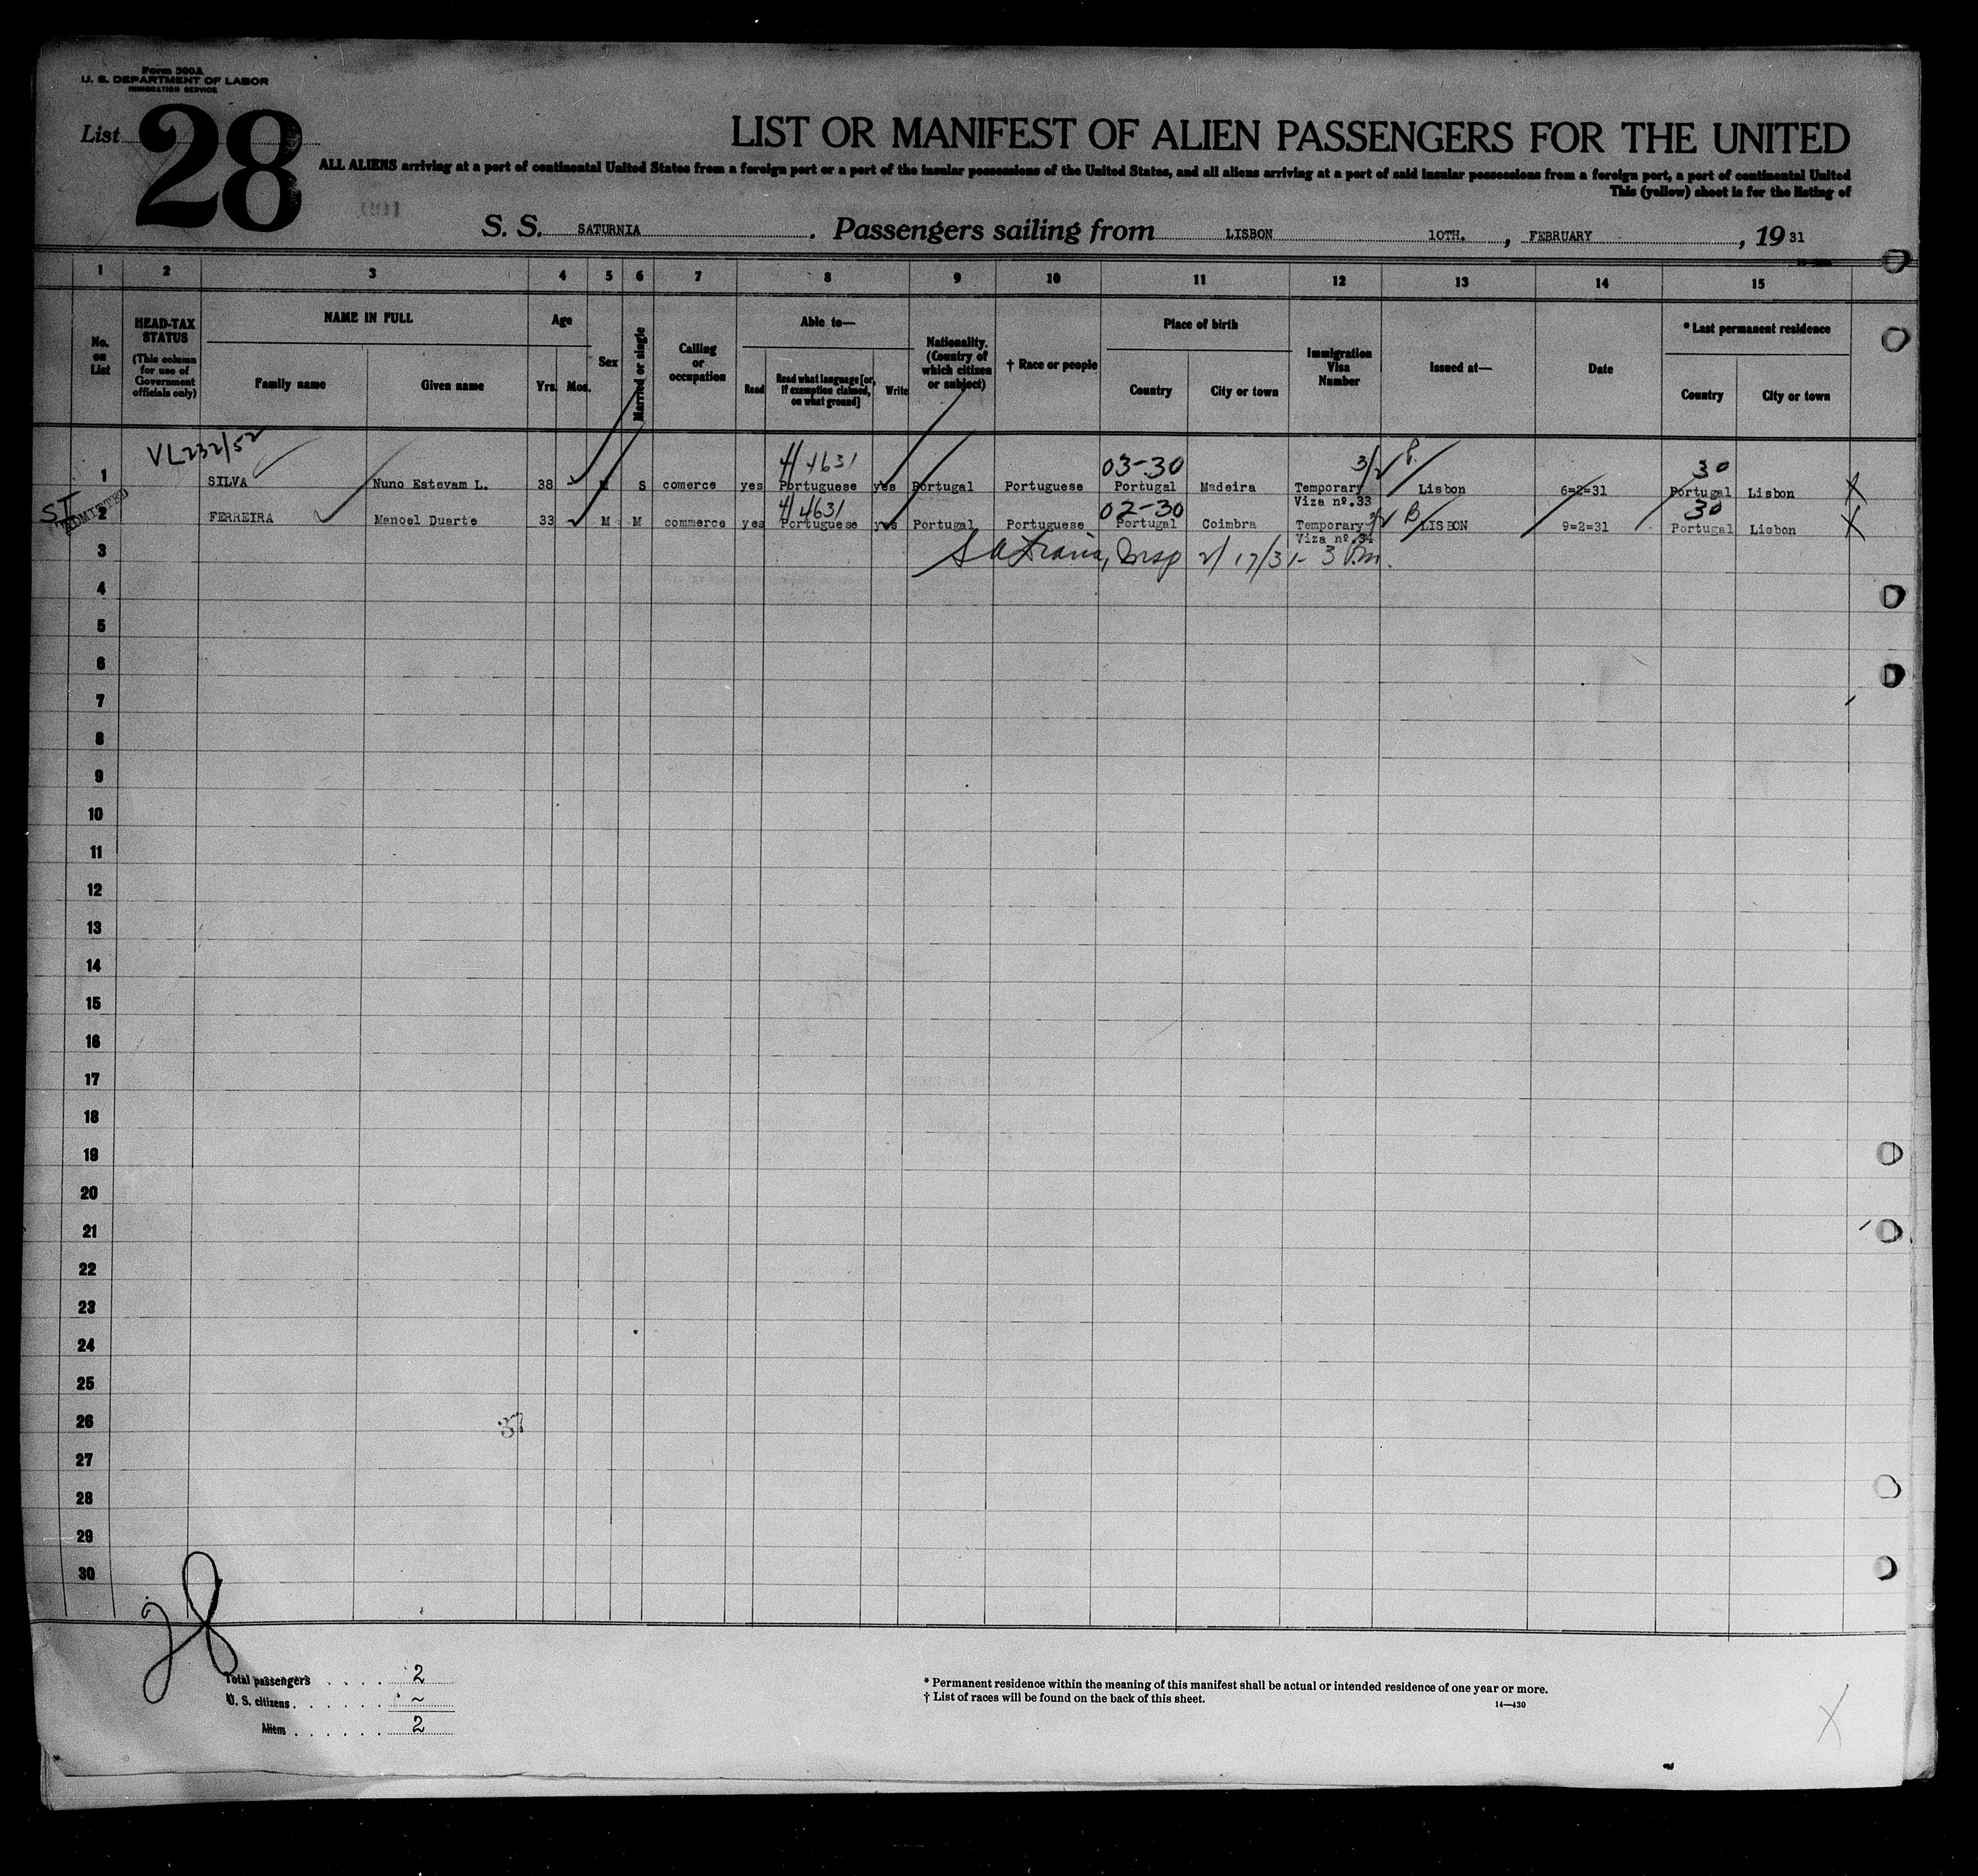 Form 500A
U. S. DEPARTMENT OF LABOR
IMMIGRATION SERVICE
List 28
LIST OR MANIFEST OF ALIEN PASSENGERS FOR THE UNITED
ALL ALIENS arriving at a port of continental United States from a foreign port or a port of the insular possessions of the United States, and all aliens arriving at a port of said insular possessions from a foreign port, a port of continental United
This (yellow) sheet is for the listing of
S. S. SATURNIA . Passengers sailing from LISBON 10TH. , FEBRUARY , 19 31
1 2 3 4 5 6 7 8 9 10 11 12 13 14 15
No. on List
HEAD-TAX STATUS
(This column for use of Government officials only)
NAME IN FULL
Family name Given name
Age
Yrs. Mos.
Sex
Married or single
Calling or occupation
Able to—
Read Read what language [or, if exemption claimed, on what ground] Write
Nationality. (Country of which citizen or subject)
† Race or people
Place of birth
Country City or town
Immigration Visa Number
Issued at—
Date
* Last permanent residence
Country City or town
VL232/52 4/4631 03-30 3/2 P. 30
1 SILVA Nuno Estevam L. 38 M S comerce yes Portuguese yes Portugal Portuguese Portugal Madeira Temporary Lisbon 6=2=31 Portugal Lisbon X
Viza nº.33
SI ADMITTED 4/4631 02-30 B 30
2 FERREIRA Manoel Duarte 33 M M commerce yes Portuguese yes Portugal Portuguese Portugal Coimbra Temporary LISBON 9=2=31 Portugal Lisbon X
Viza nº.34
3 Insp 2/17/31- 3 P.m.
4
5
6
7
8
9
10
11
12
13
14
15
16
17
18
19
20
21
22
23
24
25
26 37
27
28
29
30
28
Total passengers . . . . 2
U. S. citizens . . . . . . ~
Aliens . . . . . . 2
* Permanent residence within the meaning of this manifest shall be actual or intended residence of one year or more.
† List of races will be found on the back of this sheet.
14—430
X